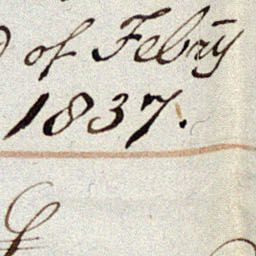 of Febry
1837.